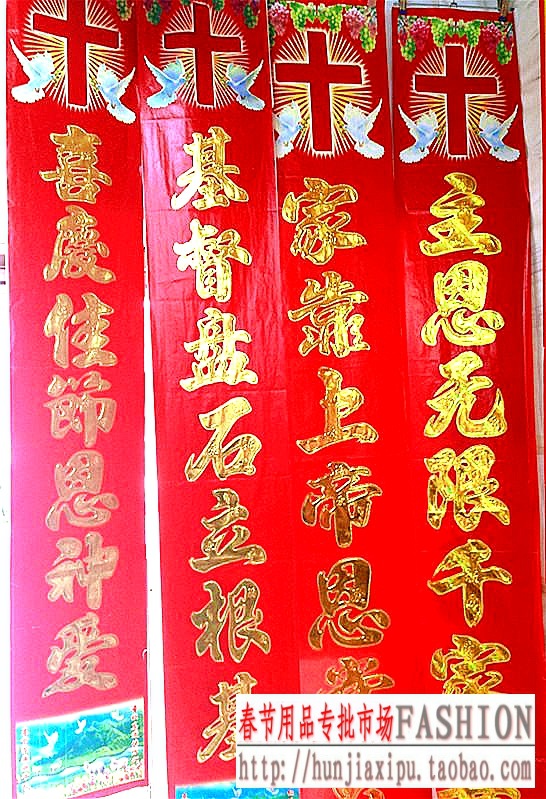 主恩无限千家
家靠上帝恩
基督盘石立根基
喜慶佳節恩神爱
春节用品专批市场FASHION
http://hunjiaxipu.taobao.com